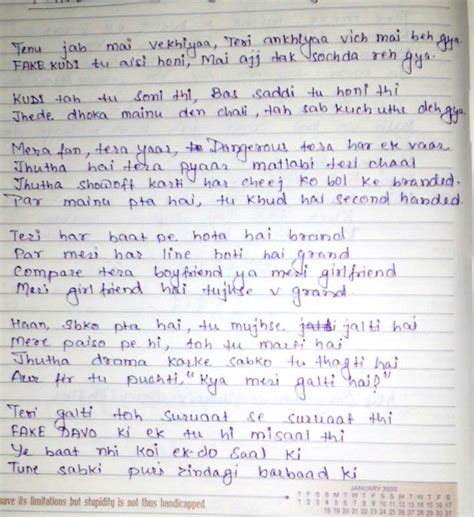 Tenu jab mai vekhiyaa, Teri ankhiyaa vich mai beh gya
FAKE KUDI tu aisi honi, Mai ajj tak sochda reh gya.
KUDI tah tu soni thi, Bas saddi tu honi thi
Jhede dhoka mainu den chali, tah sab kuch uthe deh gya
Mera fan, tera yaar, Dangerous tera har ek vaar
Jhutha hai tera pyaar matlabi teri chaal
Jhutha showoff karti har cheej ko bol ke branded.
Par mainu pta hai, tu khud hai second handed.
Teri har baat pe hota hai brand
Par meri har line hoti hai grand
Compare tera boyfriend ya meri girlfriend
Meri girlfriend hai tujhse v grand
Haan, sbko pta hai, tu mujhse jalti hai
Mere paiso pe hi, toh tu marti hai
Jhutha drama karke sabko tu thagti hai
Aur fir tu puchti "Kya meri galti hai?"
Teri galti toh suruaat se suruaat thi
FAKE DAVO ki ek tu hi misaal thi
Ye baat nhi koi ek-do saal ki
Tune sabki puri zindagi barbaad ki
ave its limitations but stupidity is not thus handicapped.
JANUARY 2009